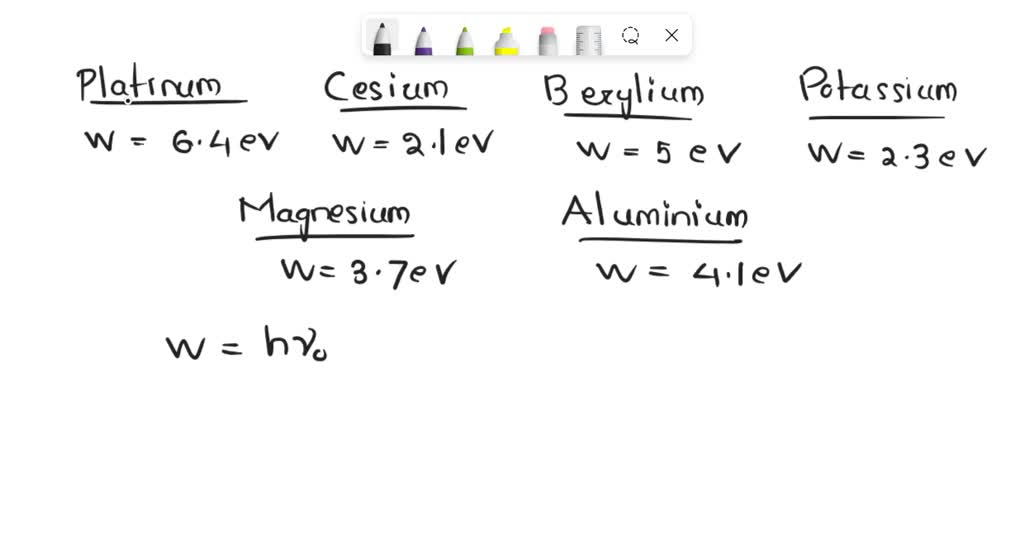 Platinum Cesium Berylium Potassium
W = 6.4 eV W = 2.1 eV W = 5 eV W = 2.3 eV
Magnesium Aluminium
W = 3.7 eV W = 4.1 eV
W = hν₀